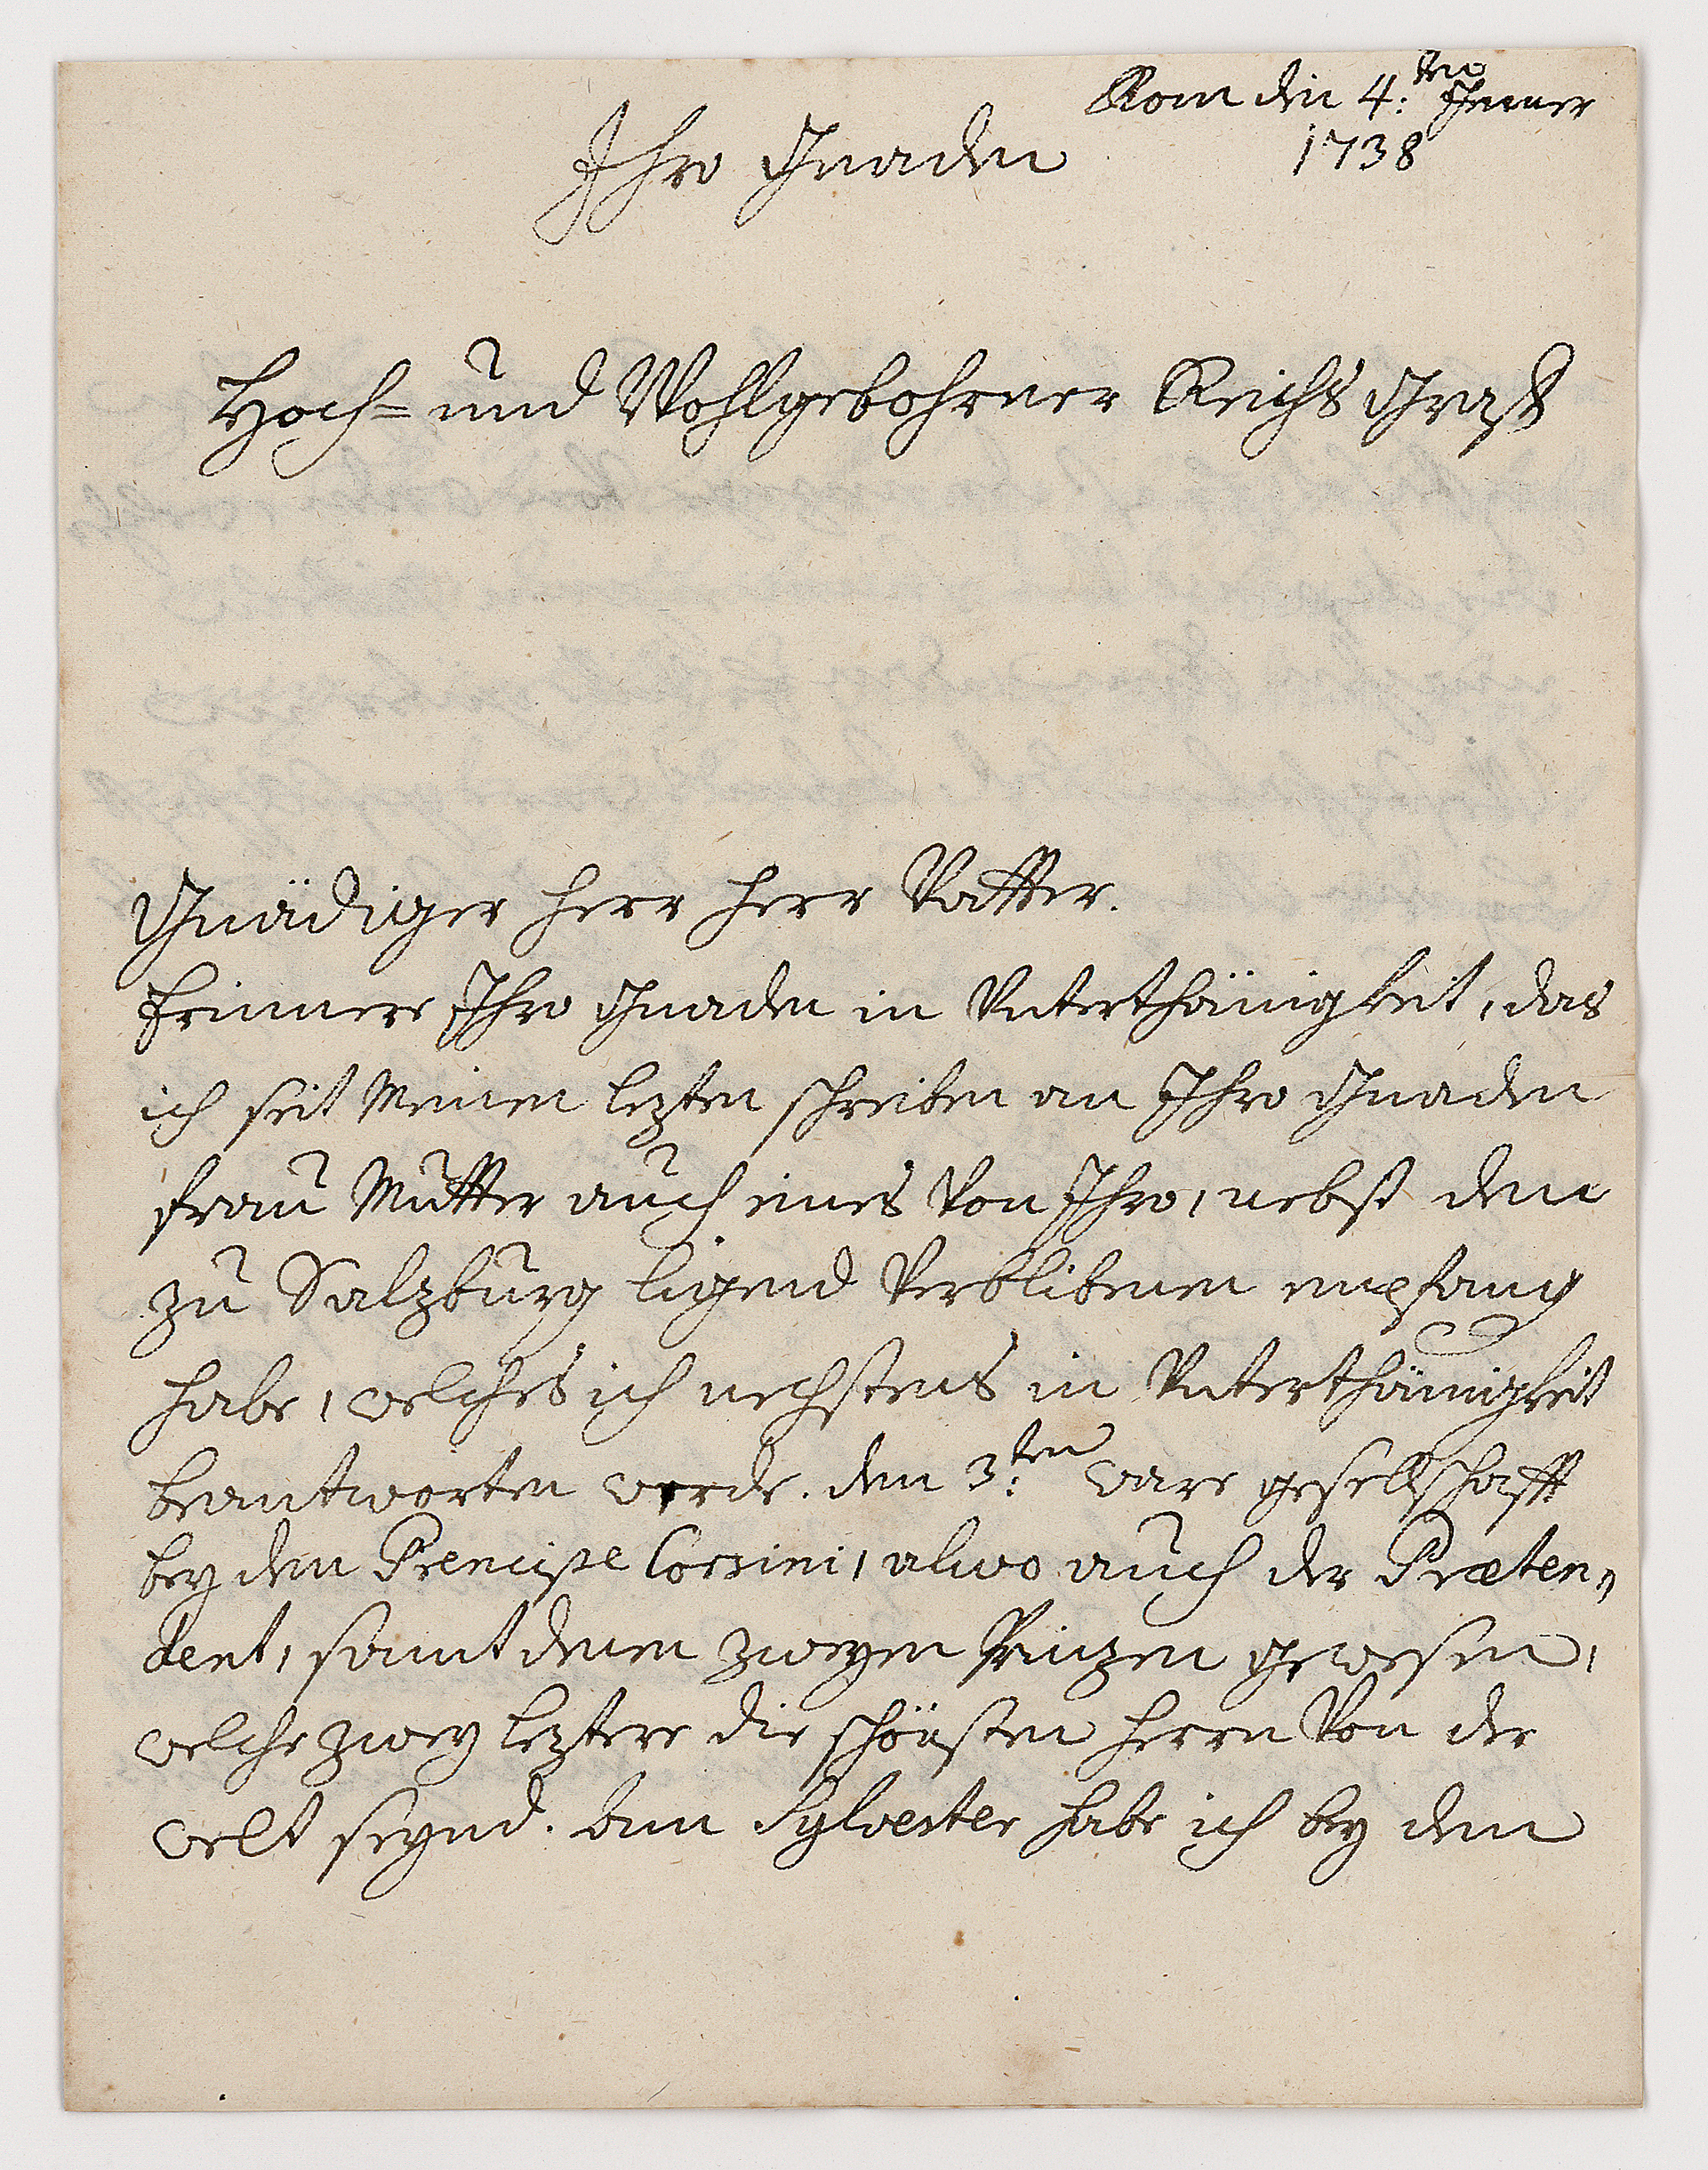 Rom den 4:ten Jenner
1738
Ihro Gnaden
Hoch= und Wohlgebohrner Reichs Graff
Gnädiger Herr Herr Vatter.
Erinnere Ihro Gnaden in Unterthänigkeit, das
ich seit Meinen lezten schreiben an Ihro Gnaden
Frau Mutter auch eines Von Ihro, nebst dem
zu Salzburg ligend Verblibenen empfang
habe, welches ich nechstens in Unterthänigkeit
beantworten werde. den 3:ten ware gesellschafft
bey dem Prencipe Corsini, alwo auch der Præten„
dent, samt denen zweyen Prinzen gewesen,
welche zwey leztere die schönsten Herrn Von der
welt seynd. Am Sylvester habe ich bey dem